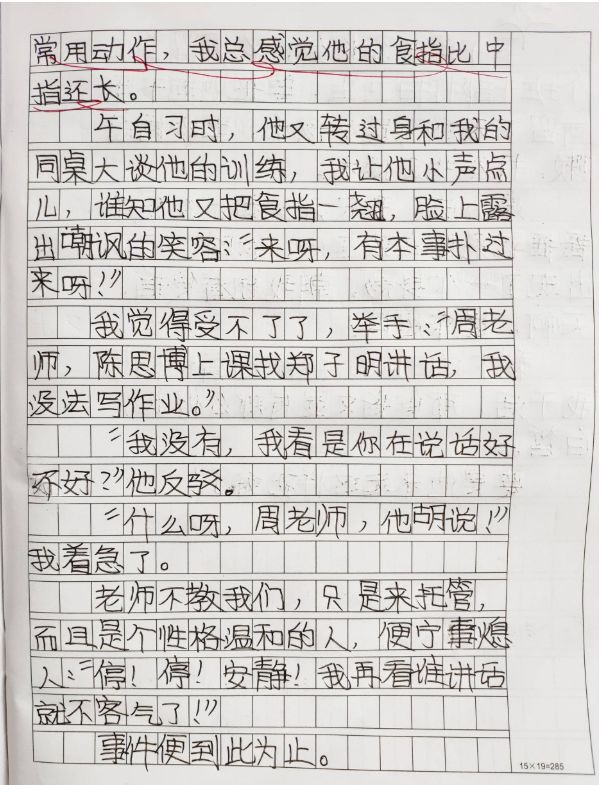 常用动作，我总感觉他的食指比中
指还长。
午自习时，他又转过身和我的
同桌大谈他的训练，我让他小声点
儿，谁知他又把食指一翘，脸上露
出嘲讽的笑容：“来呀，有本事扑过
来呀！”
我觉得受不了了，举手：“周老
师，陈思博上课找郑子明讲话，我
没法写作业。”
“我没有，我看是你在说话好
不好？”他反驳。
“什么呀，周老师，他胡说！”
我着急了。
老师不教我们，只是来托管，
而且是个性格温和的人，便宁事熄
人：“停！停！安静！我再看谁讲话
就不客气了！”
事件便到此为止。
15×19=285